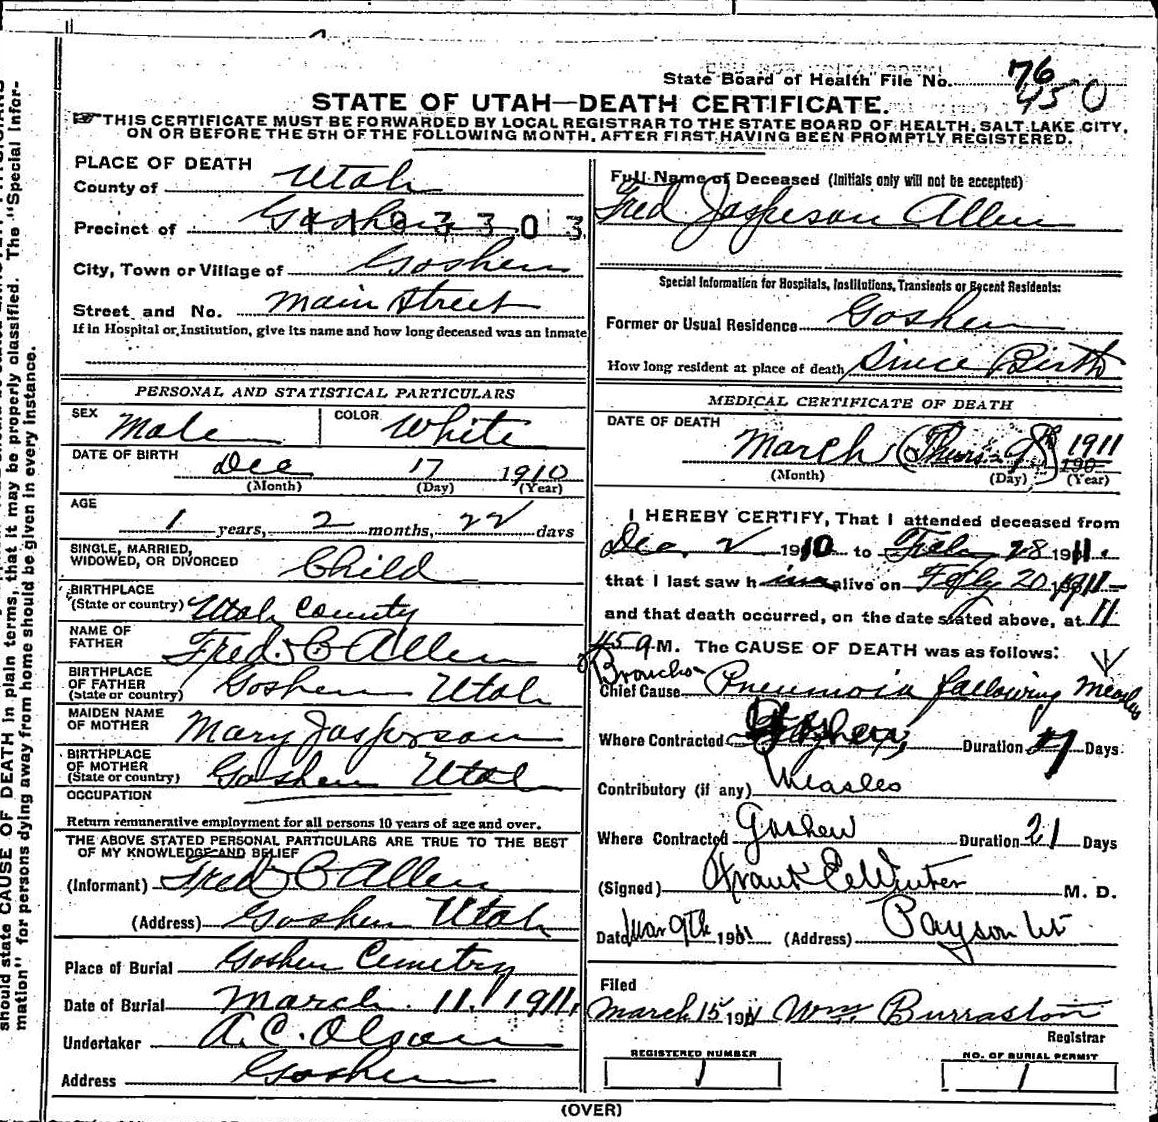 State Board of Health File No. 76
450
STATE OF UTAH—DEATH CERTIFICATE.
THIS CERTIFICATE MUST BE FORWARDED BY LOCAL REGISTRAR TO THE STATE BOARD OF HEALTH, SALT LAKE CITY,
ON OR BEFORE THE 5TH OF THE FOLLOWING MONTH, AFTER FIRST HAVING BEEN PROMPTLY REGISTERED.
PLACE OF DEATH
County of Utah
Precinct of Goshen
City, Town or Village of Goshen
Street and No. Main Street
If in Hospital or Institution, give its name and how long deceased was an inmate
PERSONAL AND STATISTICAL PARTICULARS
SEX Male COLOR White
DATE OF BIRTH Dec 17 1910
(Month) (Day) (Year)
AGE
1 years, 2 months, 22 days
SINGLE, MARRIED,
WIDOWED, OR DIVORCED Child
BIRTHPLACE
(State or country) Utah County
NAME OF
FATHER Fred C Allen
BIRTHPLACE
OF FATHER
(State or country) Goshen Utah
MAIDEN NAME
OF MOTHER Mary Jasperson
BIRTHPLACE
OF MOTHER
(State or country) Goshen Utah
OCCUPATION
Return remunerative employment for all persons 10 years of age and over.
THE ABOVE STATED PERSONAL PARTICULARS ARE TRUE TO THE BEST
OF MY KNOWLEDGE AND BELIEF
(Informant) Fred C Allen
(Address) Goshen Utah
Place of Burial Goshen Cemetry
Date of Burial March 11, 1911,
Undertaker A. C. Olson
Address Goshen
Full Name of Deceased (Initials only will not be accepted)
Fred Jasperson Allen
Special Information for Hospitals, Institutions, Transients or Recent Residents:
Former or Usual Residence Goshen
How long resident at place of death Since Birth
MEDICAL CERTIFICATE OF DEATH
DATE OF DEATH
March 9 1911
(Month) (Day) (Year)
I HEREBY CERTIFY, That I attended deceased from
Dec. 2 1910 to Feb 28 1911
that I last saw him alive on 20 1911
and that death occurred, on the date stated above, at 11
45 a M. The CAUSE OF DEATH was as follows:
Broncho
Chief Cause Pneumonia following Measles
Where Contracted Goshen, Duration 7 Days
Contributory (if any) Measles
Where Contracted Goshen Duration 21 Days
(Signed) Frank E Winter M. D.
Date Mar 9th 1911 (Address) Payson Ut
Filed
March 15 1911 Wm. Burraston
Registrar
REGISTERED NUMBER
1
NO. OF BURIAL PERMIT
1
(OVER)
should state CAUSE OF DEATH in plain terms, that it may be properly classified. The "Special Infor-
mation" for persons dying away from home should be given in every instance.